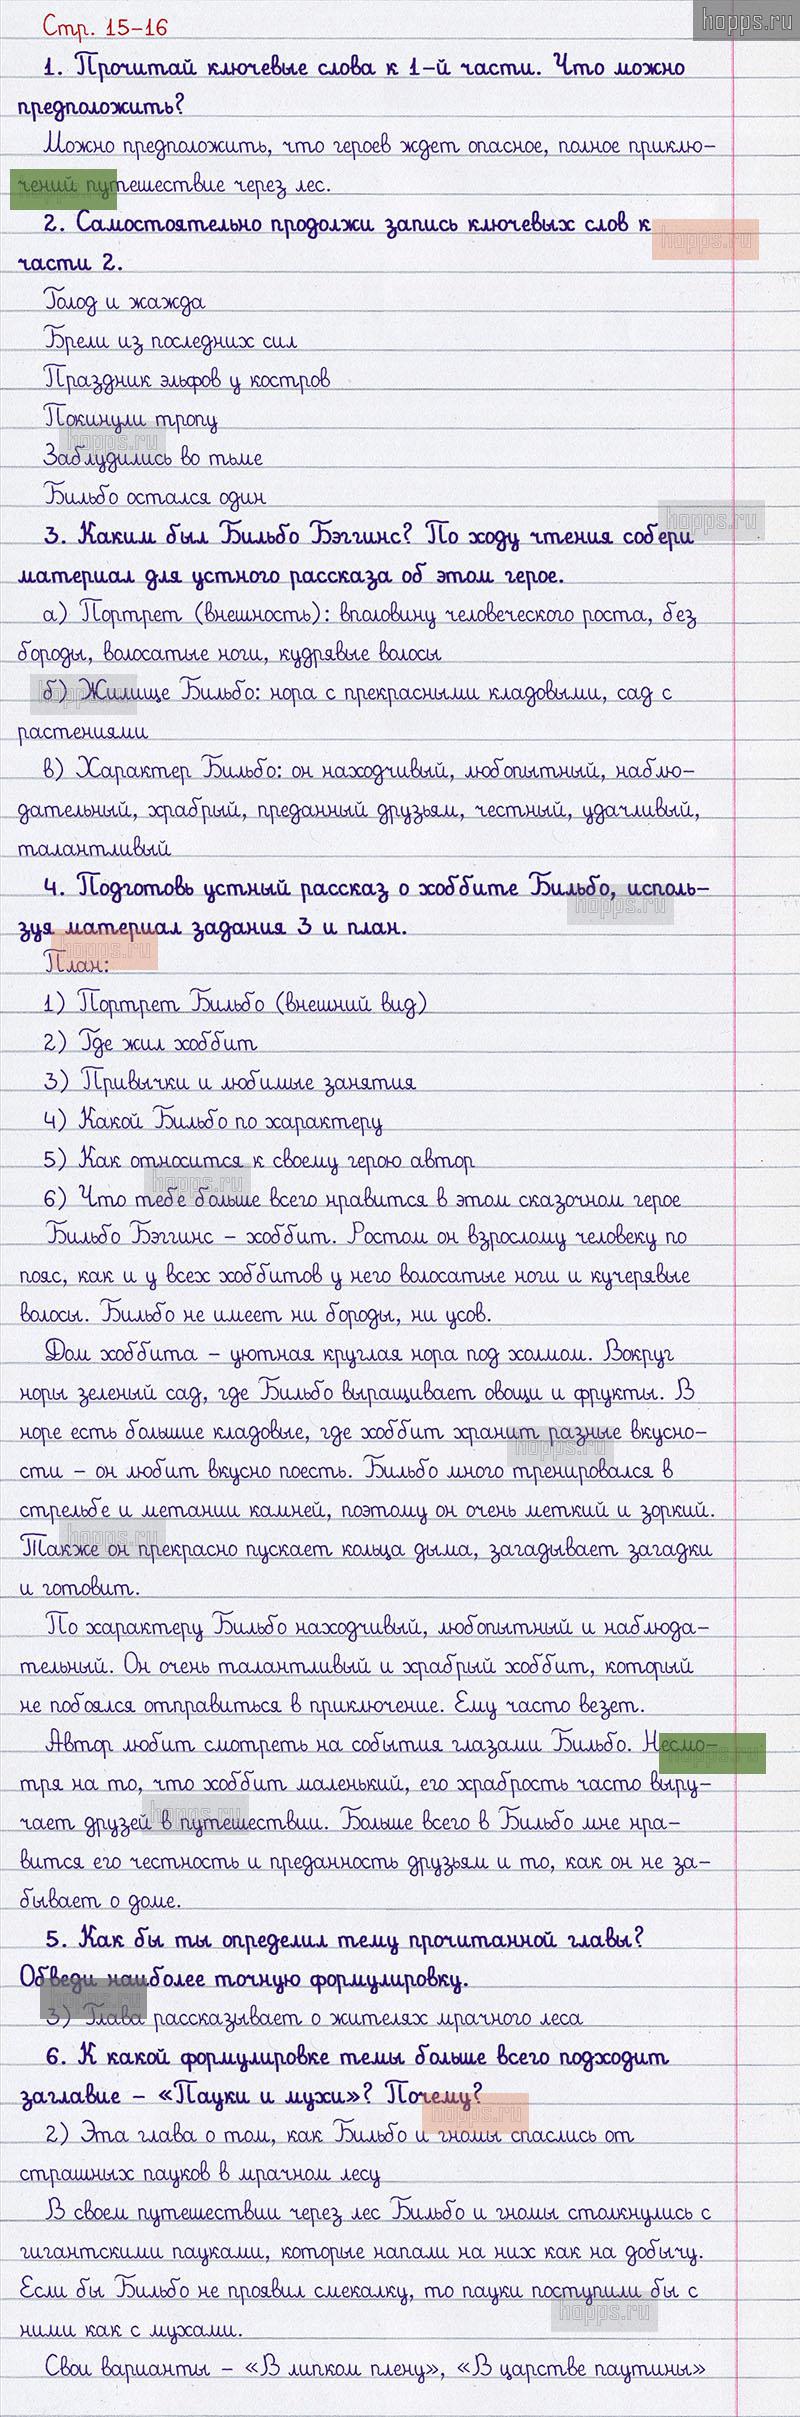 hopps.ru
Стр. 15-16
1. Прочитай ключевые слова к 1-й части. Что можно
предположить?
Можно предположить, что героев ждет опасное, полное приклю-
чений путешествие через лес.
2. Самостоятельно продолжи запись ключевых слов к
части 2.
Голод и жажда
Брели из последних сил
Праздник эльфов у костров
Покинули тропу
Заблудились во тьме
Бильбо остался один
3. Каким был Бильбо Бэггинс? По ходу чтения собери
материал для устного рассказа об этом герое.
а) Портрет (внешность): вполовину человеческого роста, без
бороды, волосатые ноги, кудрявые волосы
б) Жилище Бильбо: нора с прекрасными кладовыми, сад с
растениями
в) Характер Бильбо: он находчивый, любопытный, наблю-
дательный, храбрый, преданный друзьям, честный, удачливый,
талантливый
4. Подготовь устный рассказ о хоббите Бильбо, исполь-
зуя материал задания 3 и план.
План:
1) Портрет Бильбо (внешний вид)
2) Где жил хоббит
3) Привычки и любимые занятия
4) Какой Бильбо по характеру
5) Как относится к своему герою автор
6) Что тебе больше всего нравится в этом сказочном герое
Бильбо Бэггинс - хоббит. Ростом он взрослому человеку по
пояс, как и у всех хоббитов у него волосатые ноги и кучерявые
волосы. Бильбо не имеет ни бороды, ни усов.
Дом хоббита - уютная круглая нора под холмом. Вокруг
норы зеленый сад, где Бильбо выращивает овощи и фрукты. В
норе есть большие кладовые, где хоббит хранит разные вкусно-
сти - он любит вкусно поесть. Бильбо много тренировался в
стрельбе и метании камней, поэтому он очень меткий и зоркий.
Также он прекрасно пускает кольца дыма, загадывает загадки
и готовит.
По характеру Бильбо находчивый, любопытный и наблюда-
тельный. Он очень талантливый и храбрый хоббит, который
не побоялся отправиться в приключение. Ему часто везет.
Автор любит смотреть на события глазами Бильбо. Несмо-
тря на то, что хоббит маленький, его храбрость часто выру-
чает друзей в путешествии. Больше всего в Бильбо мне нра-
вится его честность и преданность друзьям и то, как он не за-
бывает о доме.
5. Как бы ты определил тему прочитанной главы?
Обведи наиболее точную формулировку.
3) Глава рассказывает о жителях мрачного леса
6. К какой формулировке темы больше всего подходит
заглавие - «Пауки и мухи»? Почему?
2) Эта глава о том, как Бильбо и гномы спаслись от
страшных пауков в мрачном лесу
В своем путешествии через лес Бильбо и гномы столкнулись с
гигантскими пауками, которые напали на них как на добычу.
Если бы Бильбо не проявил смекалку, то пауки поступили бы с
ними как с мухами.
Свои варианты - «В липком плену», «В царстве паутины»